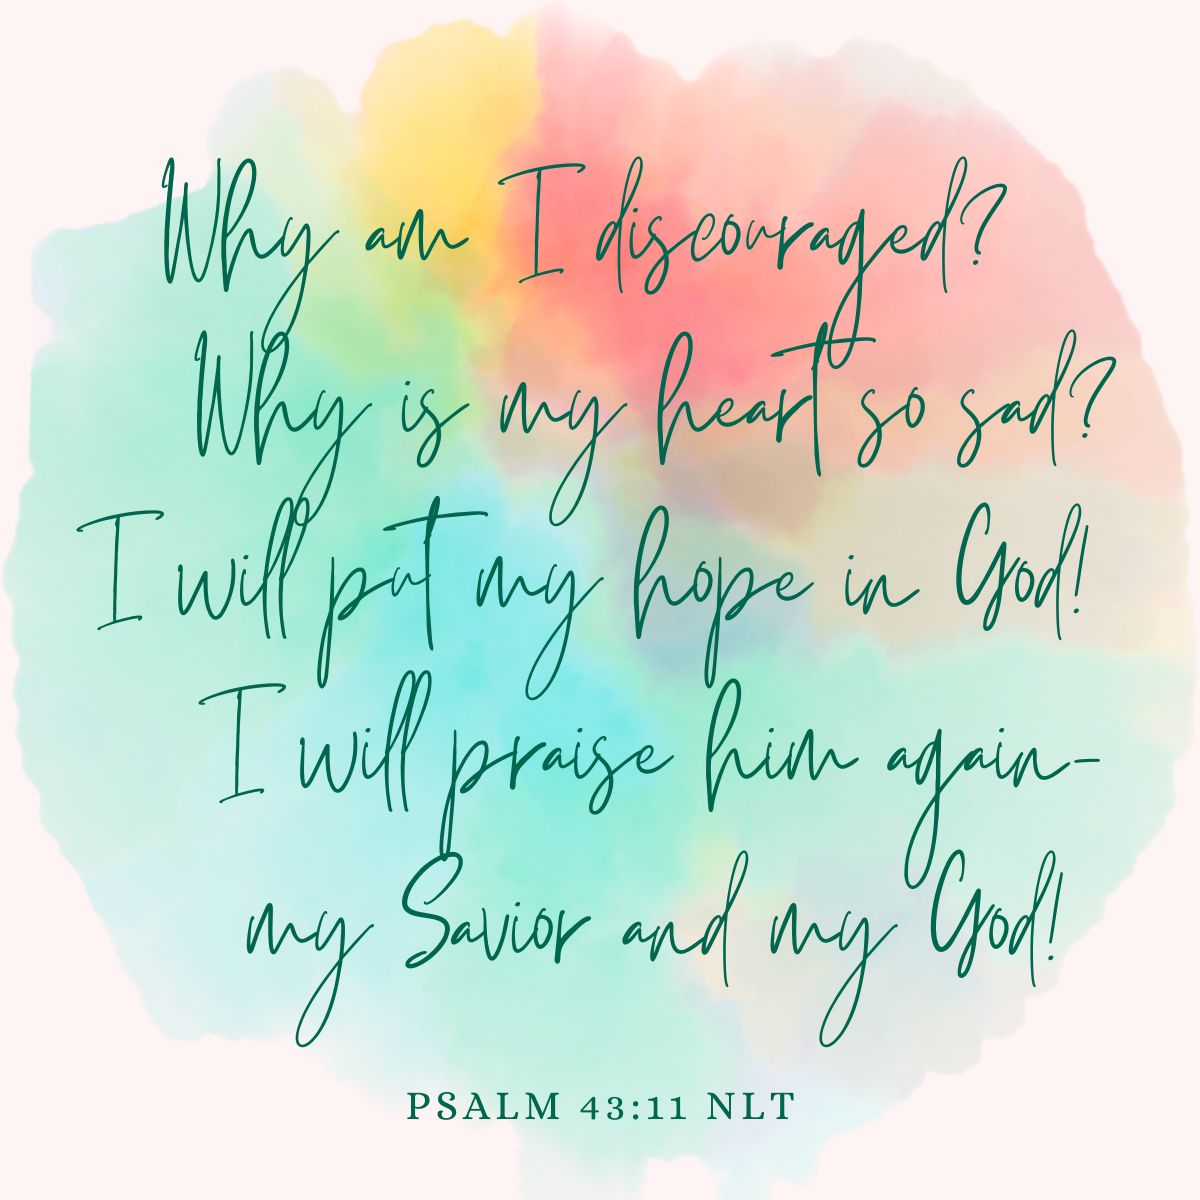 Why am I discouraged?
Why is my heart so sad?
I will put my hope in God!
I will praise him again-
my Savior and my God!
PSALM 43:11 NLT